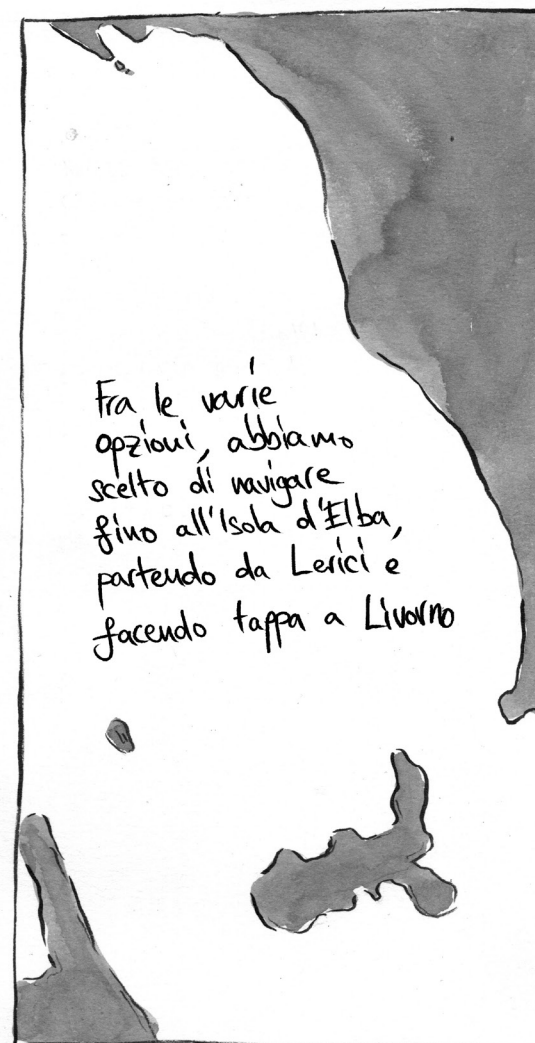 Fra le varie
opzioni, abbiamo
scelto di navigare
fino all'Isola d'Elba,
partendo da Lerici e
facendo tappa a Livorno